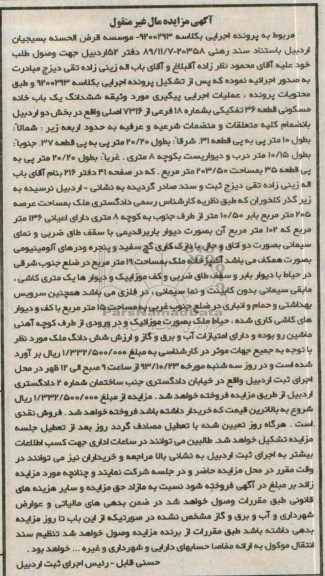 آگهی مزایده مال غیر منقول
مربوط به پرونده اجرایی بکلاسه ۹۲۰۰۲۹۳- موسسه قرض الحسنه بسیجیان
اردبیل باستناد سند رهنی ۲۰۳۵۸-۸۹/۱۱/۷ دفتر ۵۲اردبیل جهت وصول طلب
خود علیه آقای محمود نظر زاده آقبلاغ و آقای باب اله زینی زاده تقی دیزج مبادرت
به صدور اجرائیه نموده که پس از تشکیل پرونده اجرایی بکلاسه ۹۲۰۰۲۹۳ و طبق
محتویات پرونده ، عملیات اجرایی پیگیری مورد وثیقه ششدانگ یک باب خانه
مسکونی قطعه ۳۶ تفکیکی بشماره ۱۸ فرعی از ۷۳۱۶ اصلی واقع در بخش دو اردبیل
بانضمام کلیه متعلقات و منضمات شرعیه و عرفیه به حدود اربعه زیر : شمالا:
بطول ۱۰ متر پی به پی قطعه ۳۱. شرقا: بطول ۲۰/۲۰ متر پی به پی قطعه ۳۷. جنوبا:
بطول ۱۰/۱۵ متر درب و دیواریست بکوچه ۸ متری . غربا: بطول ۲۰/۲۰ متر پی به پی
قطعه ۳۵ بمساحت ۲۰۳/۵۰ متر مربع . که در صفحه ۴۱ دفتر ۲۱۶ بنام آقای باب
اله زینی زاده تقی دیزج ثبت و سند صادر گردیده به نشانی - اردبیل نرسیده به
زیر گذر کلخوران که طبق نظریه کارشناس رسمی دادگستری ملک بمساحت عرصه
۲۰۵ متر مربع بابر ۱۰/۵۰ متر از طرف جنوب به کوچه ۸ متری دارای اعیانی ۱۳۶ متر
مربع که ۱۰۲ متر مربع آن بصورت دیوار باربرقدیمی با سقف طاق ضربی و نمای
سیمانی بصورت دو اتاق و حال با نازک کاری گچ سفید و پنجره ودرهای آلومینیومی
بصورت همکف می باشد آشپزخانه ملک بمساحت ۱۹ متر مربع در ضلع جنوب شرقی
در حیاط با دیوار بابر و سقف طاق ضربی و کف موزاییک و دیوار ها یک متری کاشی ،
مابقی سیمانی بدون کابینت و نما سیمانی ، در فلزی می باشد همچنین سرویس
بهداشتی و حمام و انباری در ضلع جنوب غربی بمساحت ۱۵ متر مربع با کف و دیوار
های کاشی کاری شده ، حیاط ملک بصورت موزائیک و در ورودی از طرف کوچه آهنی
ماشین رو بوده و دارای امتیازات آب و برق و گاز و ارزش شش دانگ ملک مورد نظر
با توجه به جمیع جهات موثر در کارشناسی به مبلغ ۱/۳۳۲/۵۰۰/۰۰۰ ریال بر آورد
شده است و در روز سه شنبه مورخه ۹۳/۱۰/۲۳ از ساعت ۹ صبح الی ۱۲ ظهر در محل
اجرای ثبت اردبیل واقع در خیابان دادگستری جنب ساختمان شماره ۲ دادگستری
اردبیل از طریق مزایده فروخته شد. مزایده از مبلغ ۱/۳۳۲/۵۰۰/۰۰۰ ریال
شروع به بالاترین قیمت که خریدار داشته باشد فروخته خواهد شد . فروش نقدی
است . هرگاه روز تعیین شده با تعطیل مصادف گردد روز بعد از تعطیل جلسه
مزایده تشکیل خواهد شد. طالبین می توانند در ساعات اداری جهت کسب اطلاعات
بیشتر به اجرای ثبت اردبیل به نشانی بالا مراجعه و خریداران نیز می توانند در
وقت مقرر در محل مزایده حاضر و در جلسه شرکت نمایند و چنانچه مورد مزایده
زائد بر مبلغ در آگهی فروخته شود نسبت به مازاد حق مزایده و سایر هزینه های
قانونی طبق مقررات وصول خواهد شد در ضمن بدهی های مالیاتی و عوارض
شهرداری و آب و برق و گاز مشخص نشده در صورتیکه از این باب تا روز مزایده
بدهی داشته باشد طبق مقررات از برنده مزایده وصول خواهد شد تنظیم سند
انتقال موکول به ارائه مفاصا حسابهای دارایی و شهرداری و غیره ... خواهد بود .
حسنی قابل - رئیس اجرای ثبت اردبیل